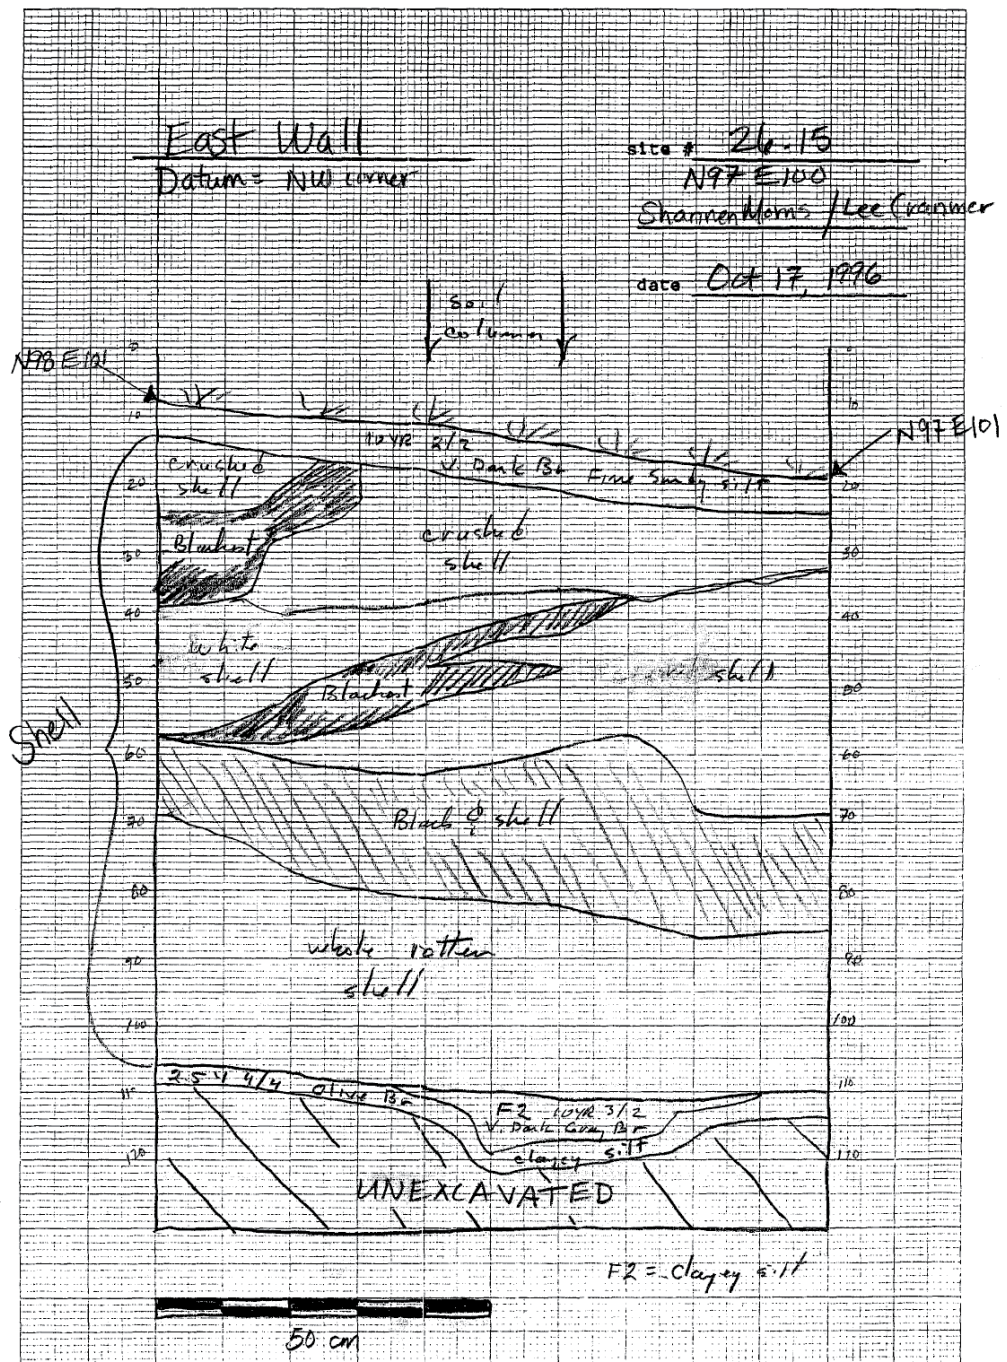 East Wall
Datum = NW corner
site # 26.15
N97 E100
Shannen Morris / Lee Cranmer
date Oct 17, 1996
soil
column
N98 E101
N97 E101
0
10
20
30
40
50
60
70
80
90
100
110
120
0
10
20
30
40
50
60
70
80
90
100
110
120
10 YR 2/2
V. Dark Br Fine Sandy silt
crushed
shell
crushed
shell
white
shell
shell
Shell
Black & shell
whole rotten
shell
2.5 Y 4/4 Olive Br
F2 10YR 3/2
V. Dark Gray Br
clayey silt
UNEXCAVATED
F2 = clayey silt
50 cm